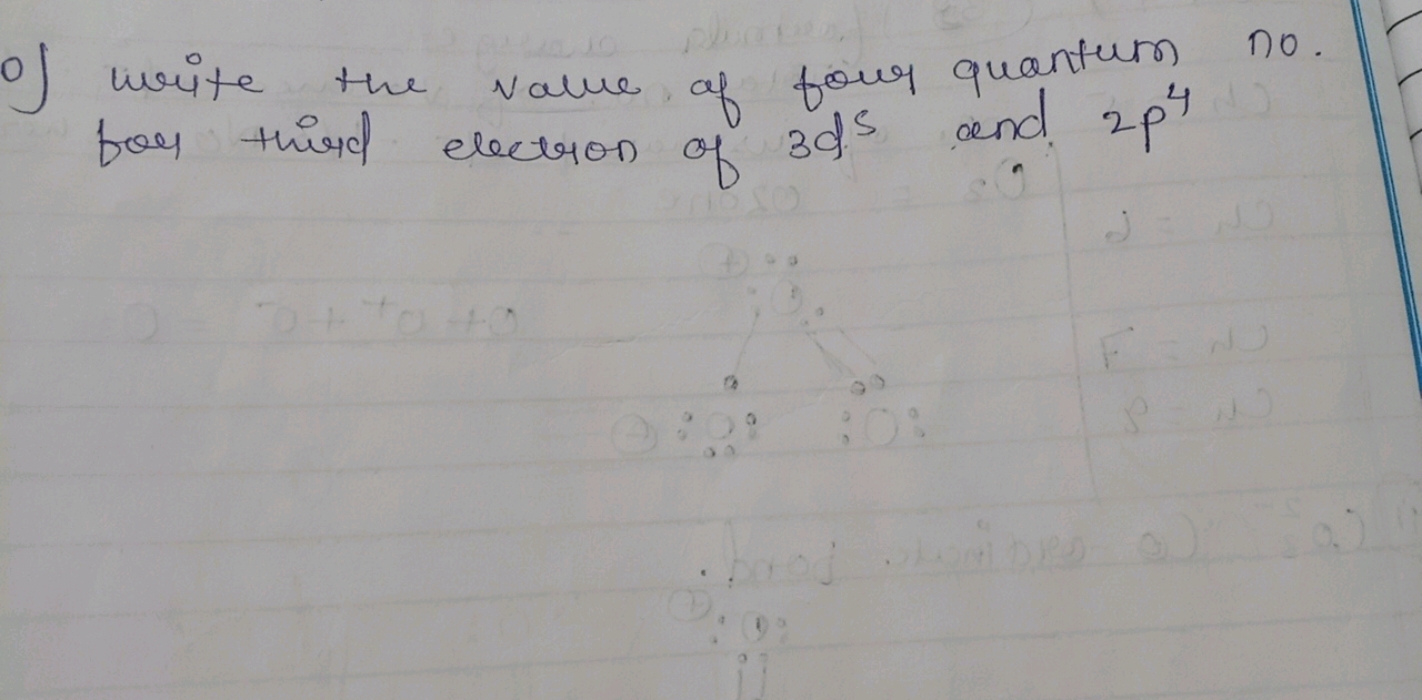 o) write the value of four quantum no.
for third electron of 3d⁵ and 2p⁴